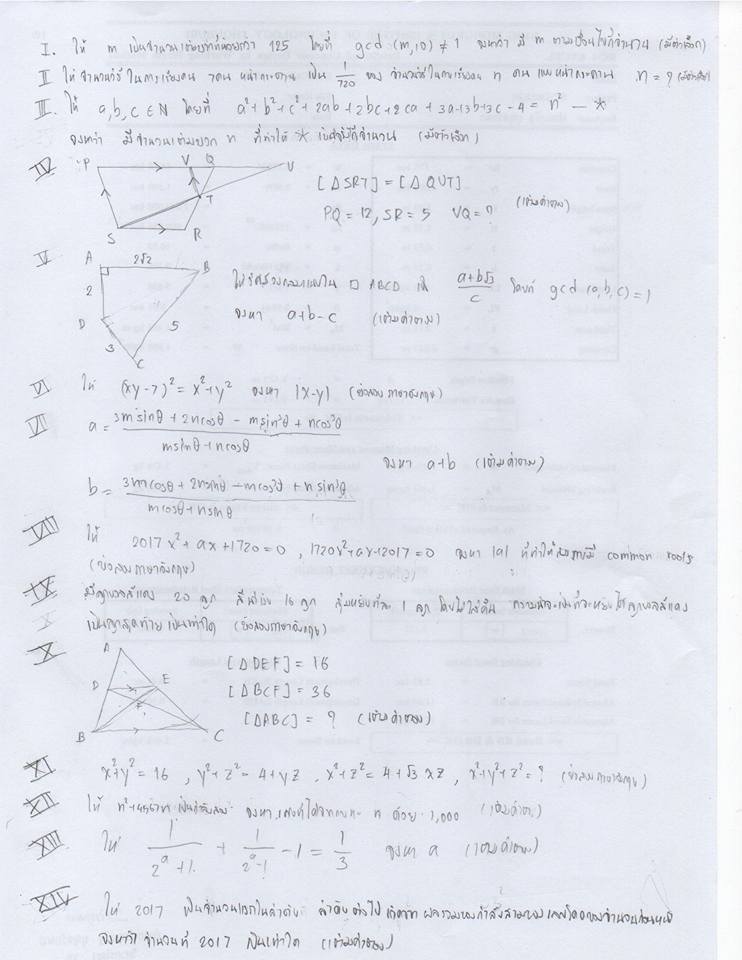 I. ให้ m เป็นจำนวนเต็มบวกที่น้อยกว่า 125 โดยที่ gcd (m,10) ≠ 1 จงหาว่า มี m ตามเงื่อนไขกี่จำนวน (มีตัวเลือก)
II ให้ จำนวนวิธี ในการเรียงคน 7คน หน้ากระดาน เป็น 1/720 ของ จำนวนวิธีในการเรียงคน n คน แบบหน้ากระดาน n = ? (มีตัวเลือก)
III. ให้ a,b,c ∈ N โดยที่ a²+b²+c²+2ab+2bc+2ca+3a+3b+3c-4 = n² — *
จงหาว่า มีจำนวนเต็มบวก n ที่ทำให้ * เป็นจริงกี่จำนวน (มีตัวเลือก)
IV
P V Q U
T
S R
[△SRT] = [△QUT]
PQ = 12, SR = 5 VQ = ? (เติมคำตอบ)
V
A 2√2 B
2
D 5
3 C
ให้ □ ABCD คือ (a+b√3)/c โดยที่ gcd (a,b,c) = 1
จงหา a+b-c (เติมคำตอบ)
VI ให้ (xy-7)² = x²+y² จงหา |x-y| (ข้อสอบภาษาอังกฤษ)
VII a = (3msinθ + 2ncosθ - msin³θ + ncos³θ)/(msinθ+ncosθ)
จงหา a+b (เติมคำตอบ)
b = (3mcosθ + 2nsinθ - mcos³θ + nsin³θ)/(mcosθ+nsinθ)
VIII ให้ 2017x²+ax+1720=0 , 1720x²+ax+2017=0 จงหา |a| ที่ทำให้สมการมี common roots
(ข้อสอบภาษาอังกฤษ)
IX มีลูกบอลสีแดง 20 ลูก สีน้ำเงิน 16 ลูก สุ่มหยิบทีละ 1 ลูก โดยไม่ใส่คืน ความน่าจะเป็นที่จะหยิบได้ลูกบอลสีแดง
เป็นลูกสุดท้าย เป็นเท่าใด (ข้อสอบภาษาอังกฤษ)
X
A
D E
F
B C
[△DEF] = 16
[△BCF] = 36
[△ABC] = ? (เติมคำตอบ)
XI x²+y²=16 , y²+z²=4+yz , x²+z²=4+√3 xz , x²+y²+z²=? (ข้อสอบภาษาอังกฤษ)
XII ให้ จงหาเศษที่ได้จากการหาร n ด้วย 1,000 (เติมคำตอบ)
XIII ให้ 1/(2ᵃ+1) + 1/(2ᵃ-1) - 1 = 1/3 จงหา a (เติมคำตอบ)
XIV ให้ 2017 เป็นจำนวนแรกในลำดับ ลำดับต่อไปเกิดจาก ผลรวมของกำลังสามของเลขโดดของจำนวนก่อนหน้า
จงหาว่า จำนวนที่ 2017 เป็นเท่าใด (เติมคำตอบ)